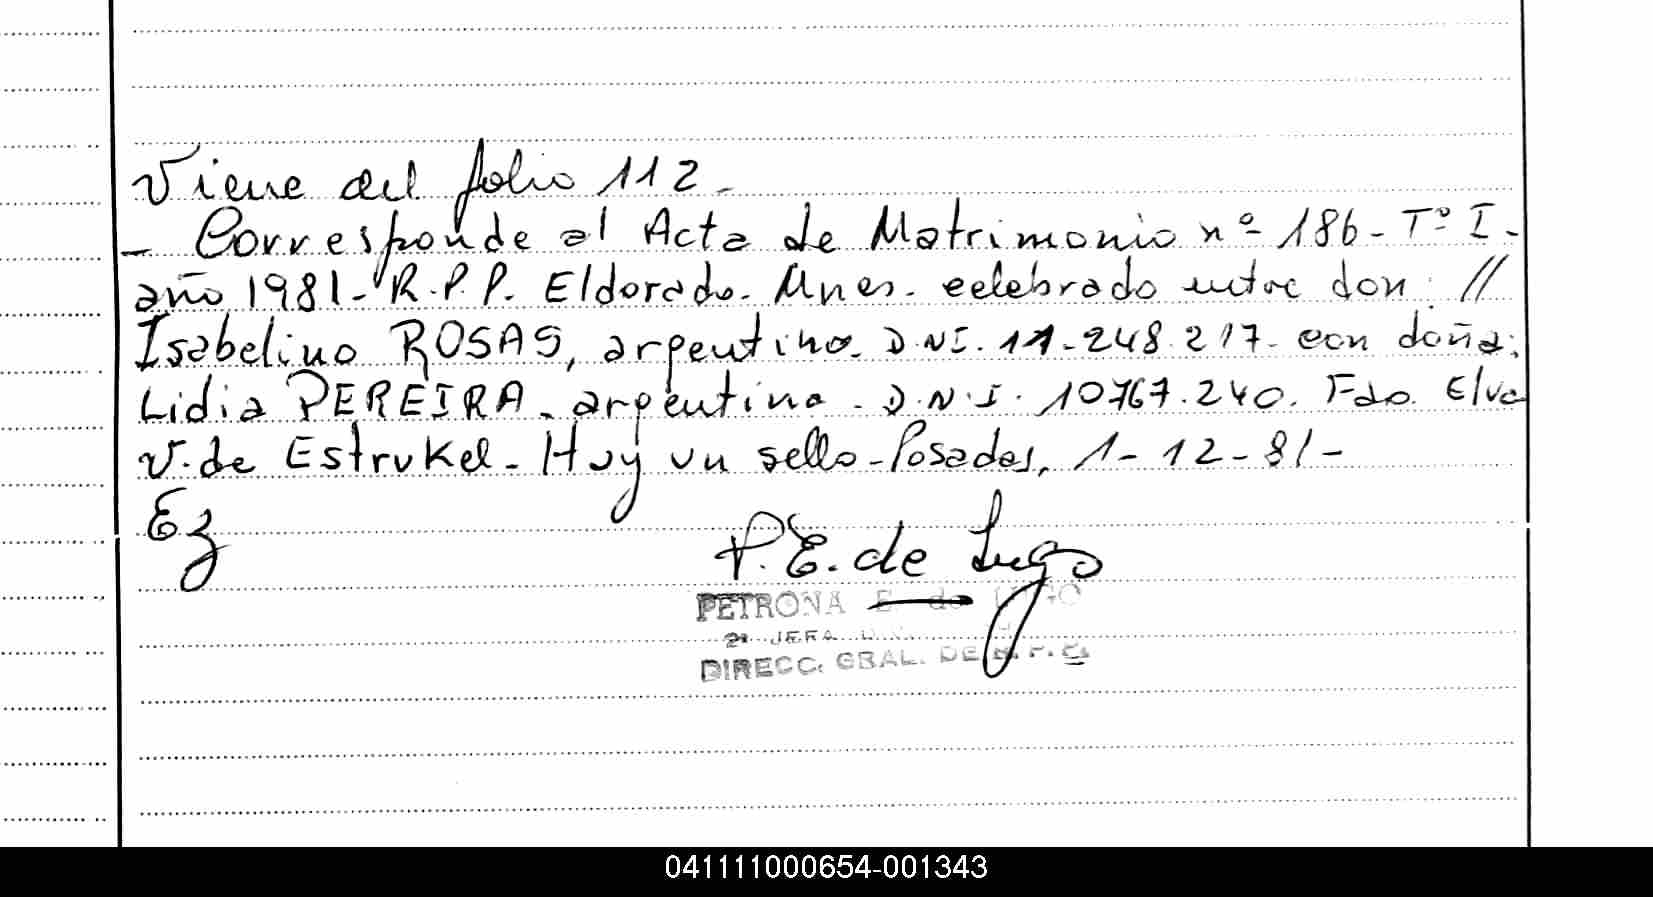 Viene del folio 112-
- Corresponde al Acta de Matrimonio nº 186- Tº I-
año 1981- R.P.P. Eldorado. Mnes. celebrado entre don: //
Isabelino ROSAS, argentino. D.NI. 11-248.217- con doña:
Lidia PEREIRA- argentina- D.N.I. 10767.240. Fdo. Elva
V. de Estrukel- Hay un sello-Posadas, 1-12-81-
Ez
P.E. de Lugo
PETRONA E de LUGO
2ª JEFA
DIRECC. GRAL. DE R.P.C.
041111000654-001343